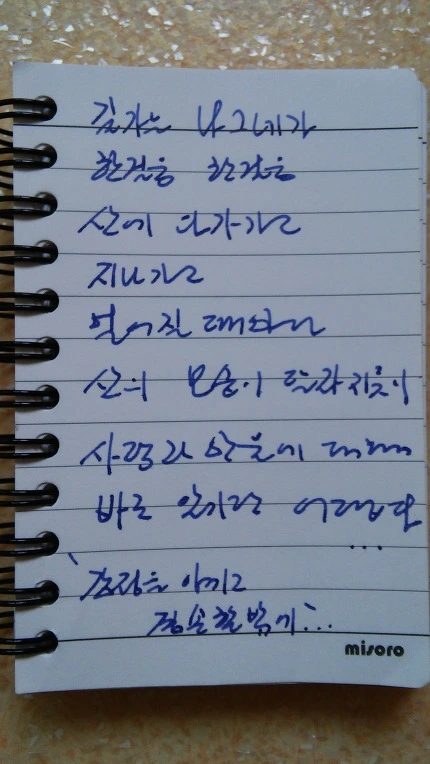 길가는 나그네가
한걸음 한걸음
산에 다가가고
지나가고
멀어질 때마다
산의 모습이 달라지듯이
사람과 만물에 대해
바로 알기란 어렵다
...
감정을 아끼고
겸손할 밖에...
misoro